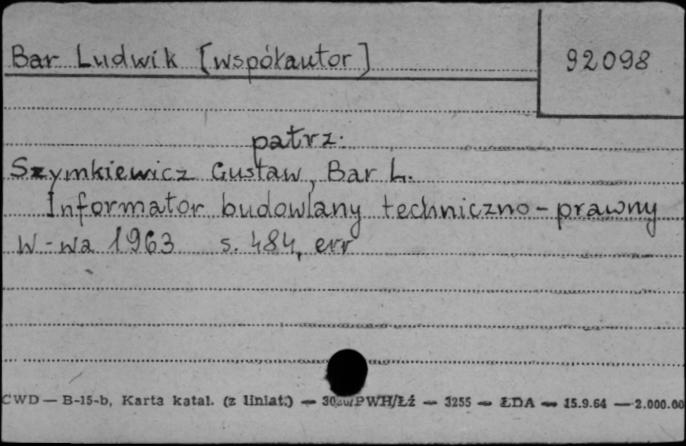 Bar Ludwik [współautor]
92098
patrz:
Szymkiewicz Gustaw, Bar L.
Informator budowlany techniczno-prawny
W-wa 1963 s. 484, err
CWD — B-15-b, Karta katal. (z liniat.) — PWH/Łź — 3255 — ŁDA — 15.9.64 — 2.000.00